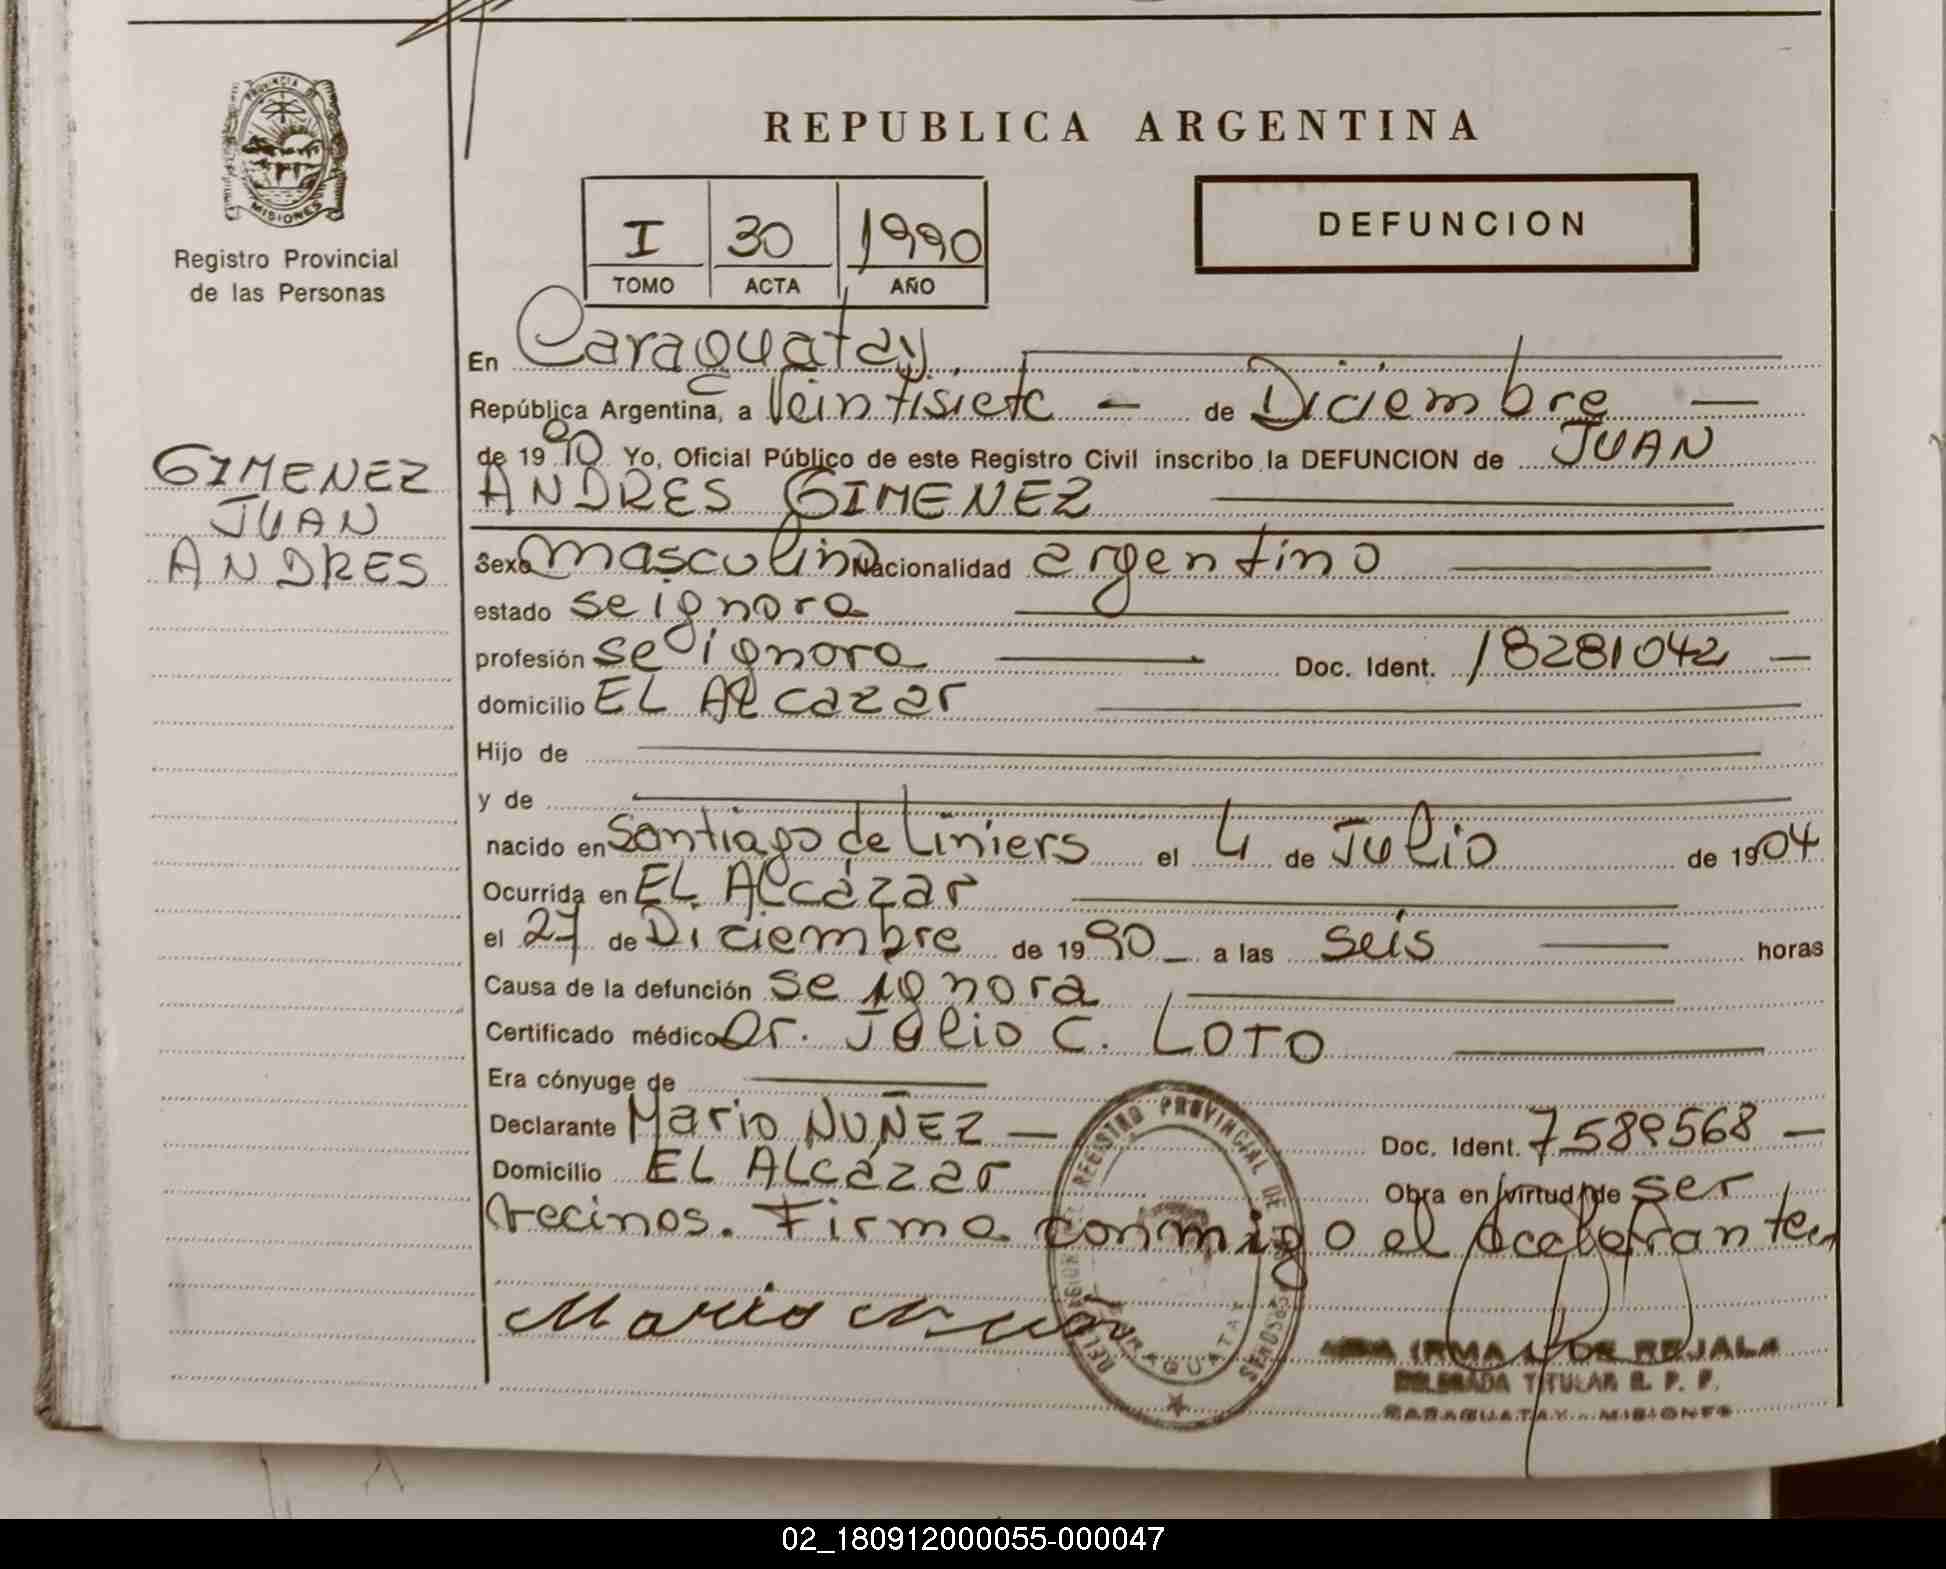 PROVINCIA DE
MISIONES
Registro Provincial
de las Personas
REPUBLICA ARGENTINA
I 30 1990
TOMO ACTA AÑO
DEFUNCION
En Caraguatay
República Argentina, a Veintisiete - de Diciembre -
de 1990 Yo, Oficial Público de este Registro Civil inscribo la DEFUNCION de JUAN
ANDRES GIMENEZ
GIMENEZ
JUAN
ANDRES
Sexo masculino Nacionalidad argentino
estado se ignora
profesión se ignora Doc. Ident. 18281042 -
domicilio EL Alcazar
Hijo de
y de
nacido en Santiago de Liniers el 4 de Julio de 1904
Ocurrida en EL Alcázar
el 27 de Diciembre de 1990 - a las seis horas
Causa de la defunción se ignora
Certificado médico Dr. Julio C. LOTO
Era cónyuge de
Declarante Mario NUÑEZ - Doc. Ident. 7589568 -
Domicilio EL ALcázar Obra en virtud de ser
vecinos. Firma conmigo el
REGISTRO PROVINCIAL DE
CARAGUATAY
Mario
IRMA DE REJALA
DELEGADA TITULAR R. P. P.
CARAGUATAY - MISIONES
02_180912000055-000047